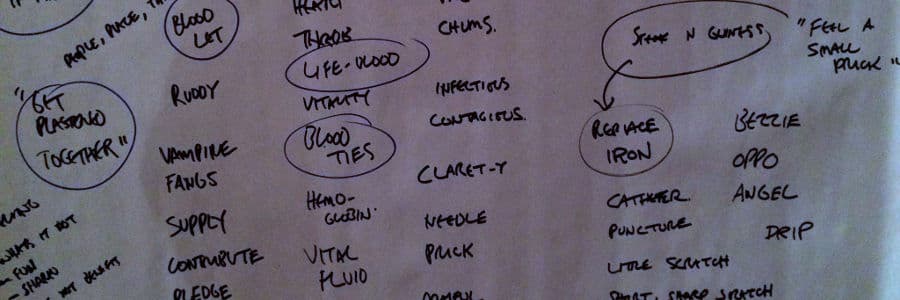 PEOPLE, PLACE,
"GET
PLASTERED
TOGETHER"
WHAT IT NOT
- FUN
- SHARED
BLOOD
LET
RUDDY
VAMPIRE
FANGS
SUPPLY
CONTRIBUTE
PLEDGE
THROB
LIFE-BLOOD
VITALITY
BLOOD
TIES
HEMO-
GLOBIN.
VITAL
FLUID
CHUMS.
INFECTIOUS
CONTAGIOUS.
CLARET-Y
NEEDLE
PRICK
STEAK N GUINESS
REPLACE
IRON
CATHETER.
PUNCTURE
LITTLE SCRATCH
SHORT, SHARP SCRATCH
"FEEL A
SMALL
PRICK"
BEZZIE
OPPO
ANGEL
DRIP